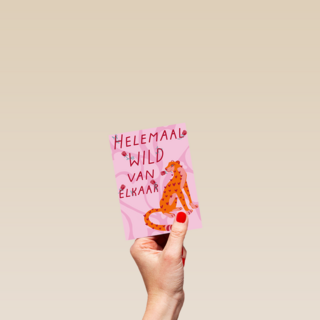 HELEMAAL
WILD
VAN
ELKAAR